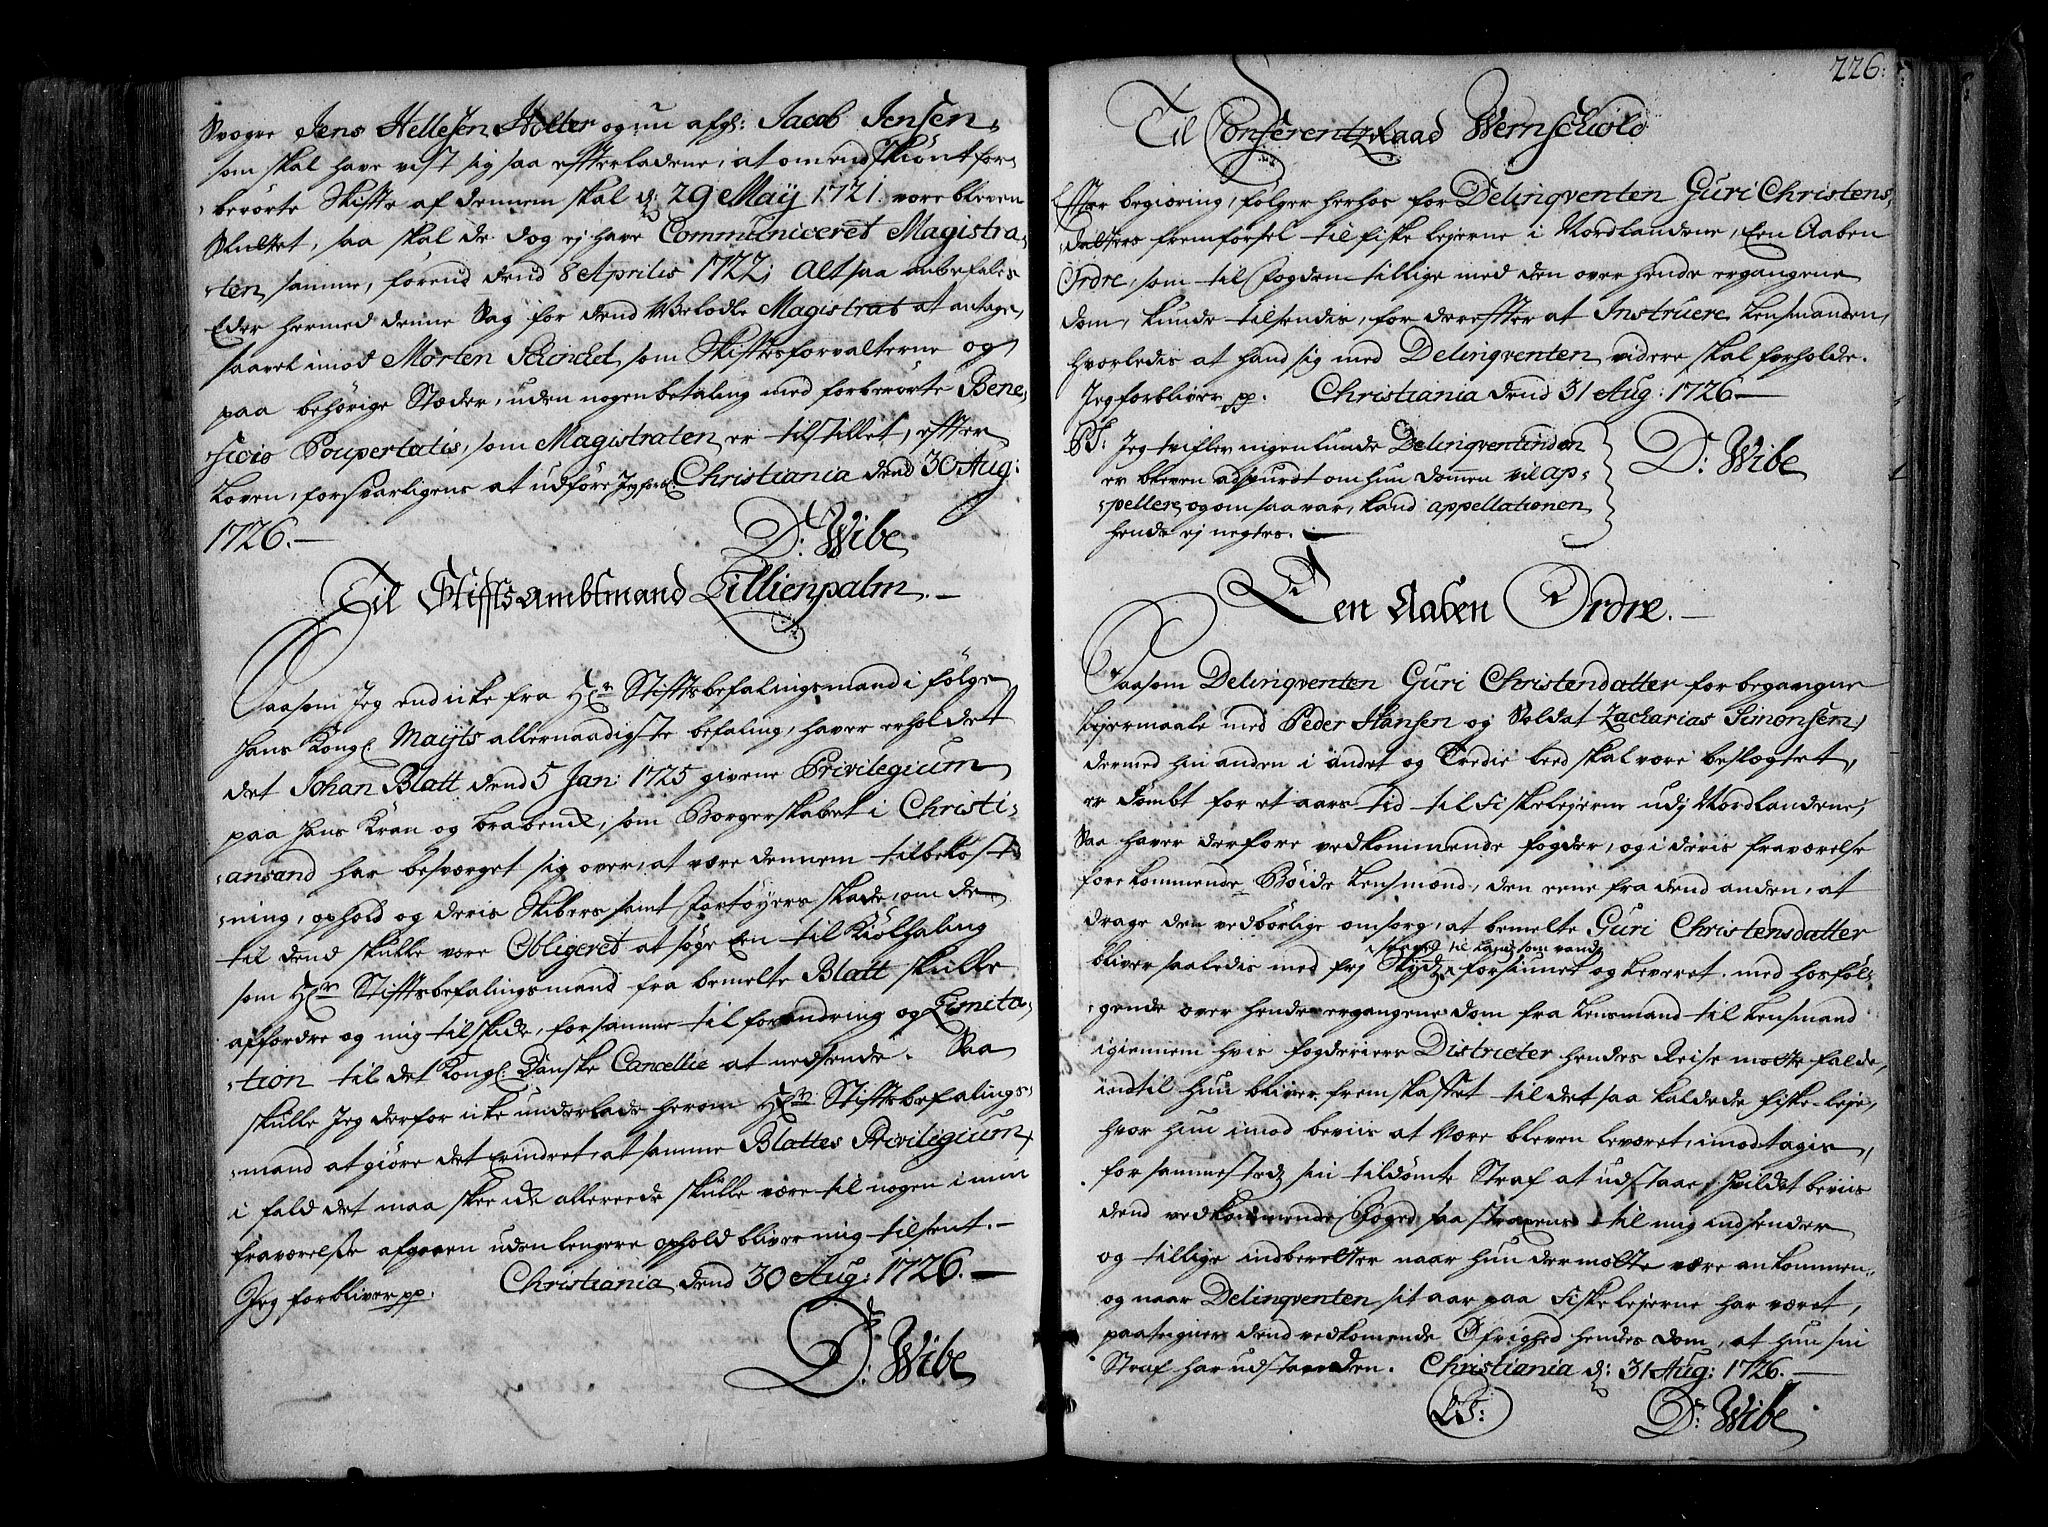 Svogre Jens Hellesen Holter og nu afg: Jacob Jensen,
som skal have vist sig saa effterladene, at omendskiönt for-
berörte Skiffte af dennem skal d: 29 Maij 1721. vore bleven
Sluttet, saa skal de dog ej have Communiceret Magistra-
ten samme, förend dend 8 Aprilis 1722; Alt saa anbefalis
Eder hermed denne Sag for dend Velædle Magistrat at antage,
saavel imod Morten Schondel, som Skifftesforvalterne og
paa behörige Stæder, uden nogen betaling med forberörte Bene-
ficio Poupertatis, som Magistraten er tilstillet, effter
Loven, forsvarligens at udföre Jeg forbl: Christiania dend 30 Aug:
1726.
D: Wibe
Til Stiffts Ambtmand Lillienpalm.
Saasom Jeg end icke fra Hr: Stifftsbefalingsmand i fölge
Hans Kongl. Mayts allernaadigste befaling, haver erholdet
det Johan Blatt dend 5 Jan: 1725 givene Privilegium
paa Hans Kran og brabenk, som Borgerskabet i Christi-
ansand har besværget sig over, at være dennem til bekost-
ning, ophold og deris Skibers samt Fortöyers skade, om de
til dend skulle vore Obligeret at söge Een til Kiölhaling
som Hr: Stifftsbefalingsmand fra bemelte Blatt skulle
affordre og mig tilskicke, for samme til forandring og Limita-
tion til det Kongl: Danske Cancellie at nedsende. Saa
skulle Jeg derfor icke underlade herom Hr: Stifftsbefalings-
mand at giöre det Erindret, at samme Blattes Privilegium,
i fald det maa skee icke allereede skulle være til nogen i min
fraværelse afgaaen uden lengere ophold bliver mig tilsent.
Jeg forbliver pp. Christiania, dend 30 Aug: 1726.
D: Wibe
226.
Til Conferentz Raad Wernschiold
Effter begiæring, fölger herhos for Delinqventen Guri Christens-
datters fremförsel til fiskelejerne i Nordlandene, Een Aaben
Ordre, som til Fogden tillige med den over hende ergangene
dom, kunde tilsendis, for dereffter at Instruere Lensmanden,
hvorledis at hand sig med Delinqventen videre skal forholde.
Jeg forbliver pp. Christiania dend 31 Aug: 1726
PS: Jeg tvifler ingenlunde Delinqventinden
er bleven adspurdt om hun dommen vil ap-
pellere, og om saa var, kand appellationen
hende ej negtes.
D: Wibe
Een Aaben Ordre.
Saasom Delinqventen Guri Christendatter for begangne
Lejermaale med Peder Hansen og Soldat Zacharias Simonsen,
dermed hin anden i andet og Tredie leed skal vore beslægtet,
er dömbt for et aars tid til Fiskelejerne udj Nordlandene,
Saa haver derfore vedkommende fogder, og i deris fraværelse
forekommende Böide Lensmænd, den eene fra dend anden, at
drage den vedbörlige omsorg, at bemelte Guri Christensdatter
saavel til Lands som vands
bliver saaledis med frj Skydz forsiunet og Leveret med hosföl-
gende over hende ergangene dom fra Lensmand til Lensmand
igiennem hvis fogderiers Districter hendes Reise motte falde,
indtil hun bliver fremskaffet til det saa kaldede fiske-leje,
hvor hun imod beviis at være bleven leveret, imodtagis,
for sammestedz sin tildömte Straf at udstaae, hvildet beviis
dend vedkommende Foged faa straxens til mig indsender
og tillige indberetter naar hun der motte være ankommen
og naar Delinqventen sit aar paa Fiskelejerne har været,
paateigner dend vedkomende Öfrighed hendes dom, at hun sin
Straf har udstaaeden. Christiania d: 31 Aug: 1726.
LS:
D: Wibe